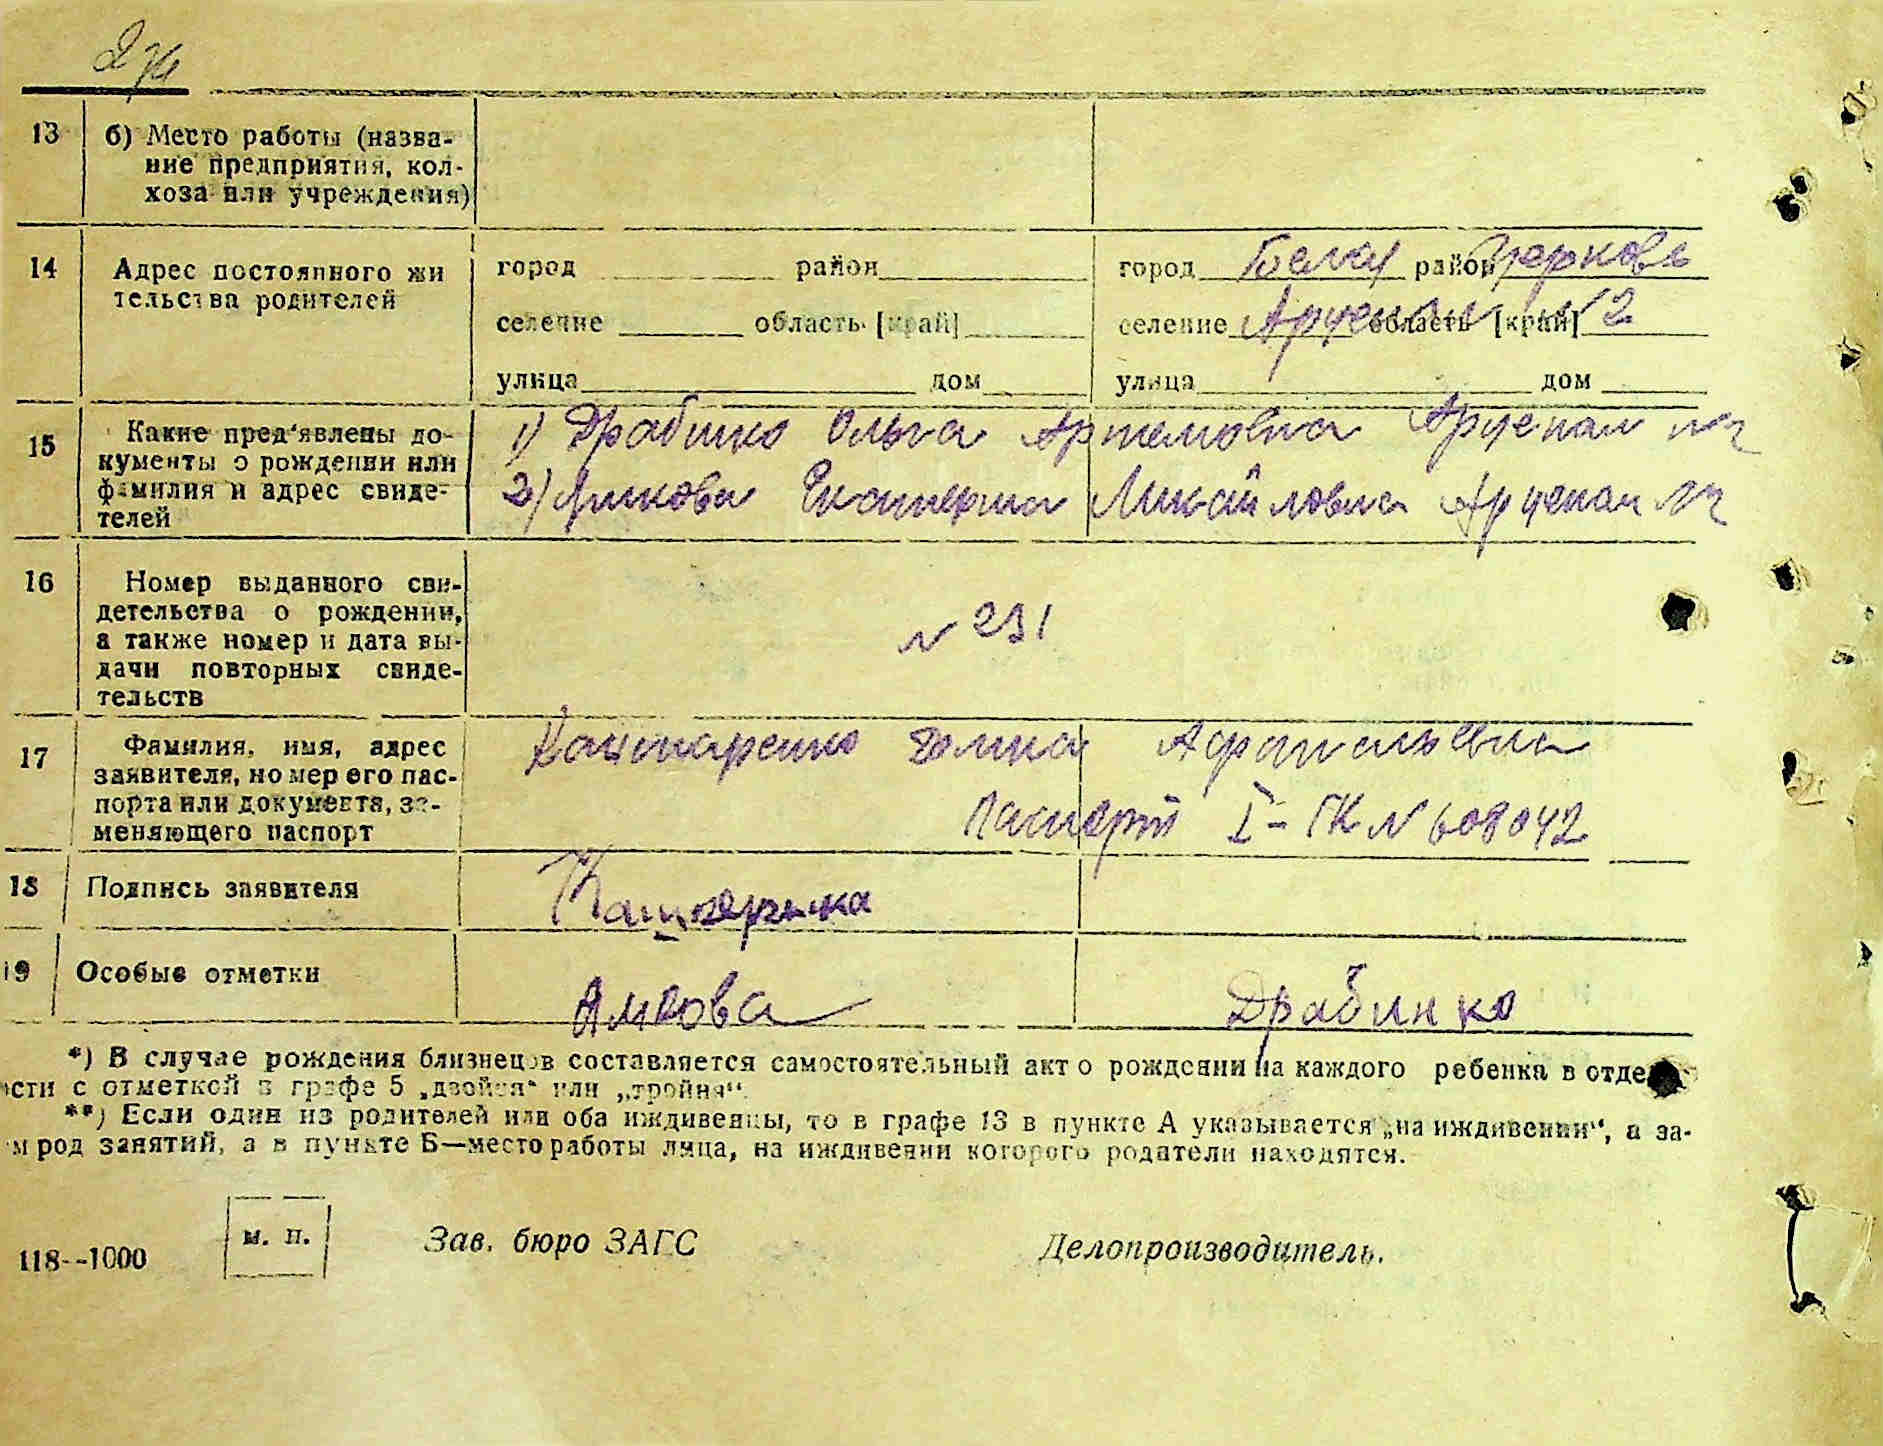 13 б) Место работы (назва-
ние предприятия, кол-
хоза или учреждения)
14 Адрес постоянного жи
тельства родителей
город район
селение область [край]
улица дом
город Белая район Церковь
селение область [край] 2
улица дом
15 Какие пред'явлены до-
кументы о рождении или
фамилия и адрес свиде-
телей
1) Драбинко Ольга Артемовна
2) Екатерина Михайловна
16 Номер выданного сви-
детельства о рождении,
а также номер и дата вы-
дачи повторных свиде-
тельств
N 231
17 Фамилия, имя, адрес
заявителя, номер его пас-
порта или документа, за-
меняющего паспорт
Паспорт I-ГК N 608042
18 Подпись заявителя
19 Особые отметки
Драбинко
*) В случае рождения близнецов составляется самостоятельный акт о рождении на каждого ребенка в отде
ости с отметкой в графе 5 „двойня“ или „тройня“.
**) Если один из родителей или оба иждивенцы, то в графе 13 в пункте А указывается „на иждивении“, а за-
м род занятий, а в пункте Б—место работы лица, на иждивении которого родители находятся.
118--1000 м. п. Зав. бюро ЗАГС Делопроизводитель.